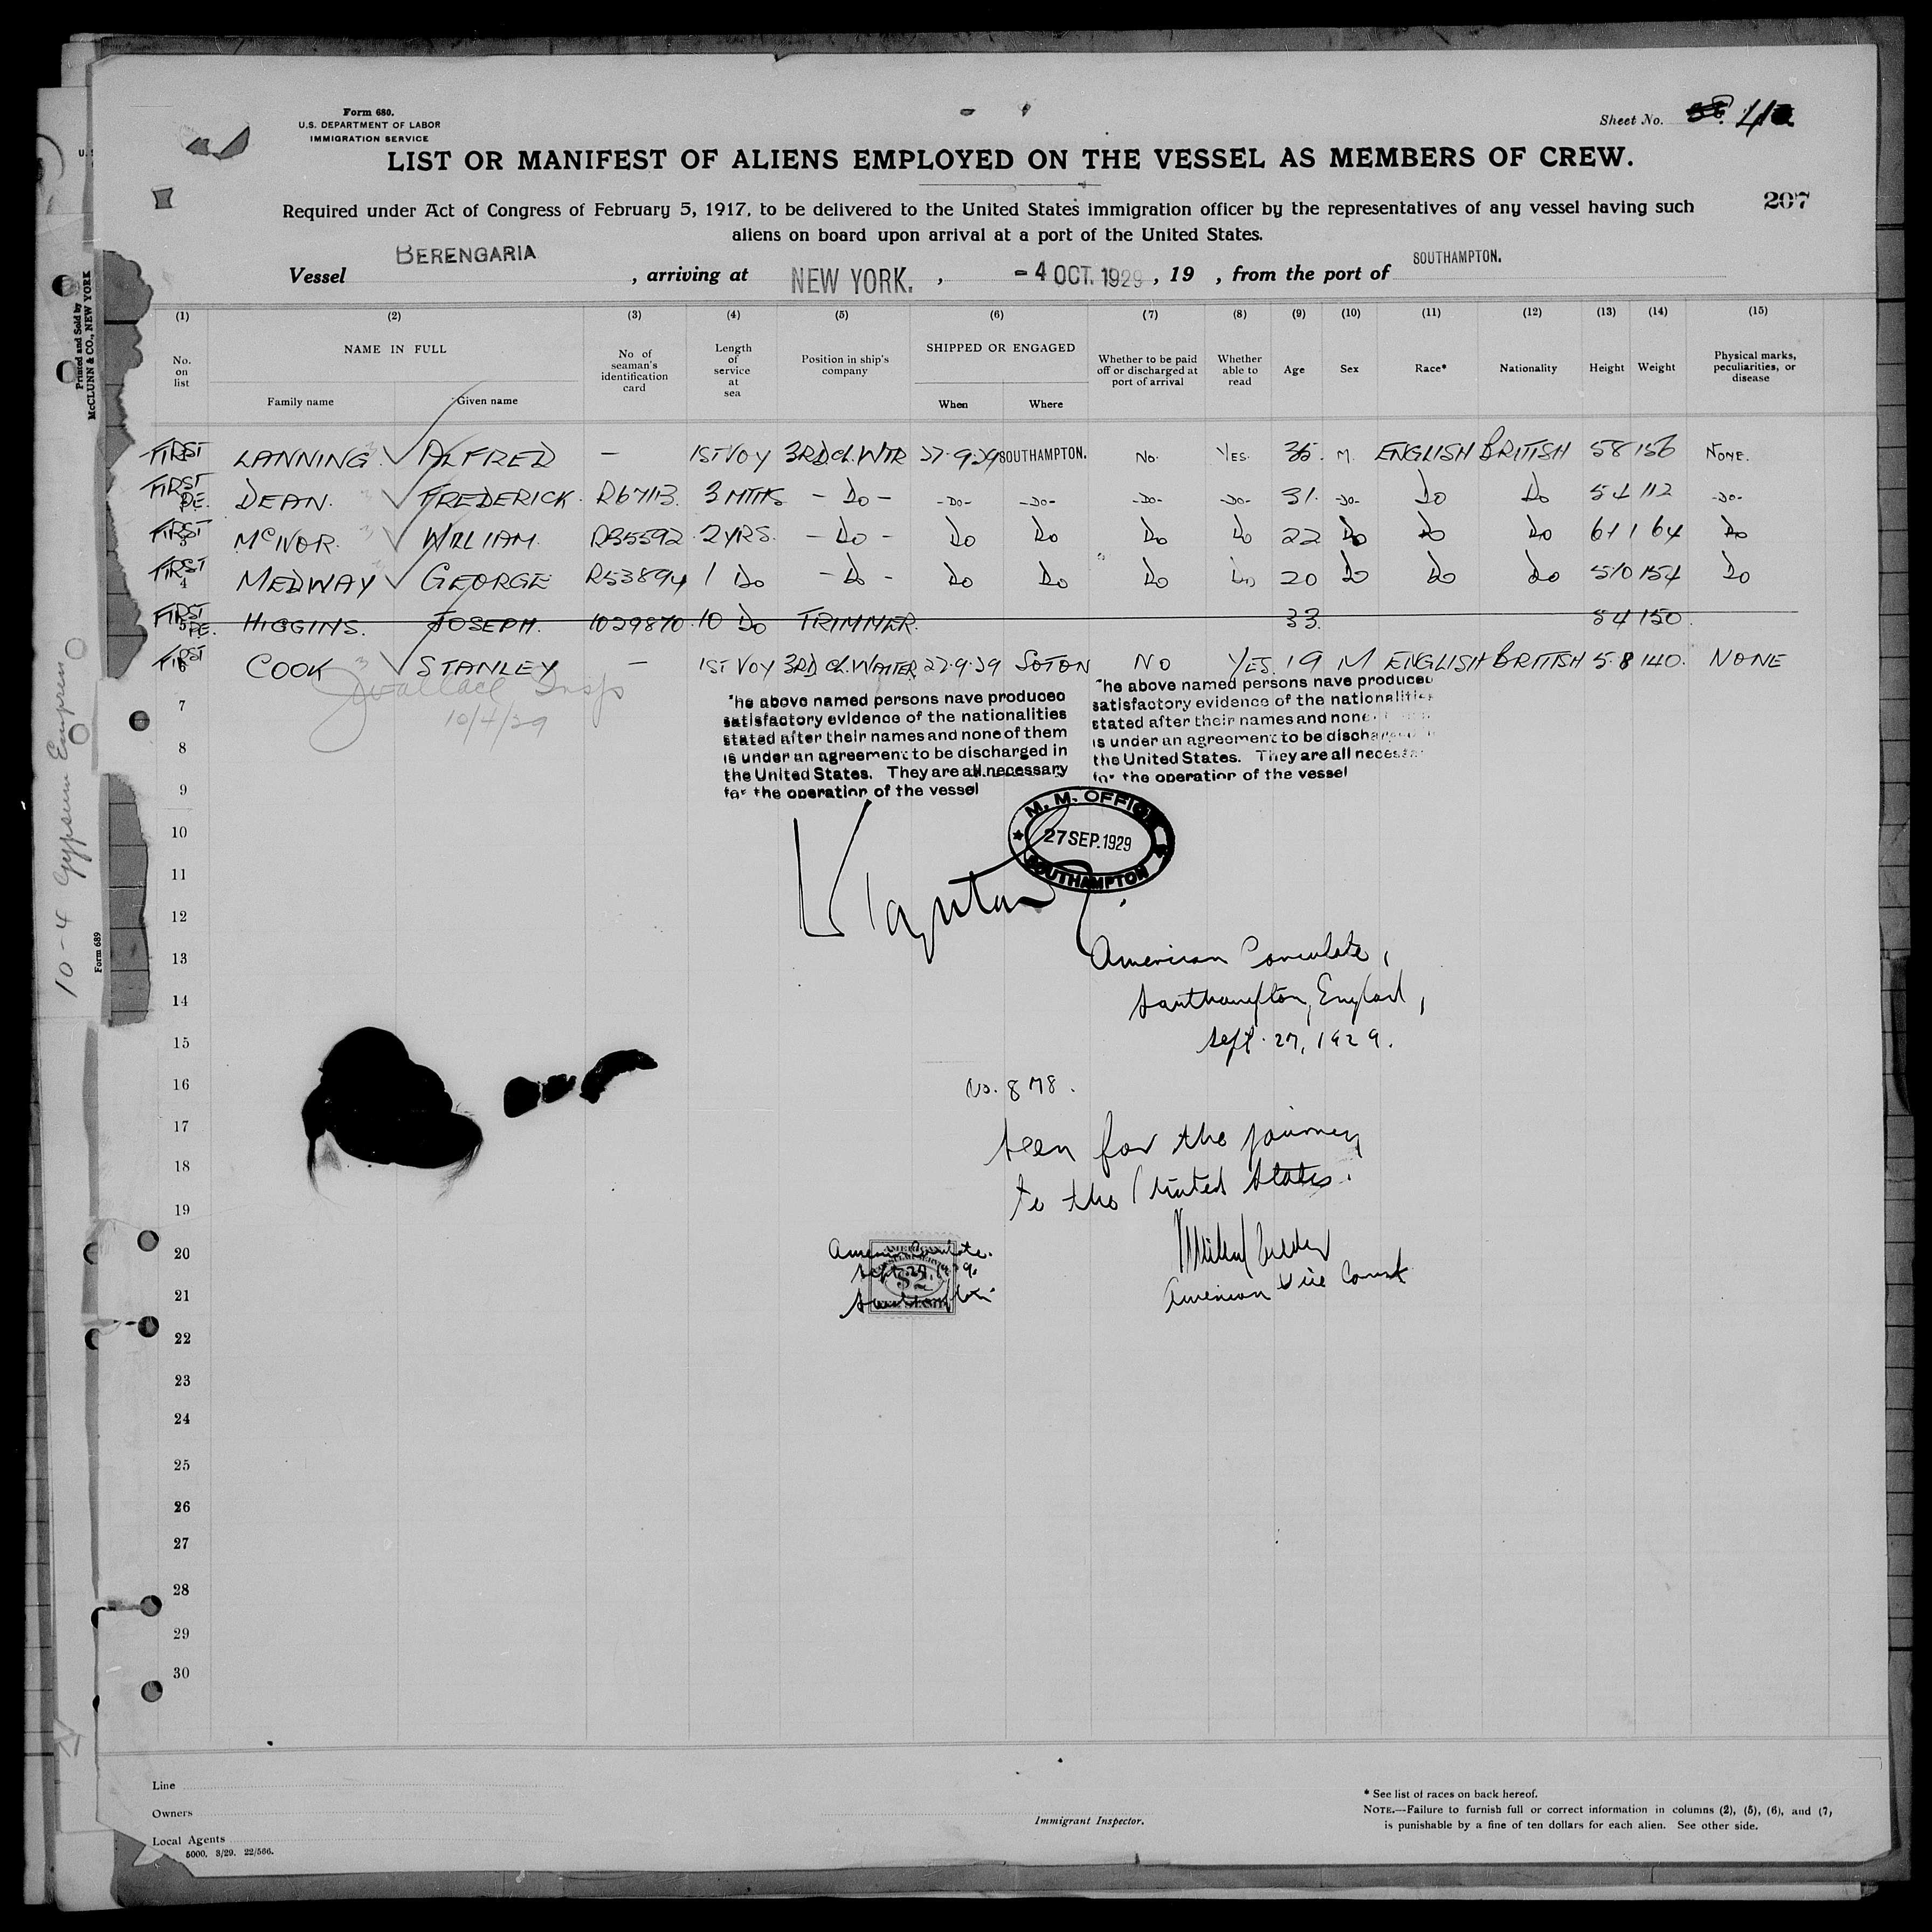 Form 680.
U.S. DEPARTMENT OF LABOR
IMMIGRATION SERVICE
Sheet No.
LIST OR MANIFEST OF ALIENS EMPLOYED ON THE VESSEL AS MEMBERS OF CREW.
207
Required under Act of Congress of February 5, 1917, to be delivered to the United States immigration officer by the representatives of any vessel having such
aliens on board upon arrival at a port of the United States.
Vessel BERENGARIA, arriving at NEW YORK., -4 OCT. 1929, 19 , from the port of SOUTHAMPTON.
(1) (2) (3) (4) (5) (6) (7) (8) (9) (10) (11) (12) (13) (14) (15)
No. on list NAME IN FULL Family name Given name No of seaman's identification card Length of service at sea Position in ship's company SHIPPED OR ENGAGED When Where Whether to be paid off or discharged at port of arrival Whether able to read Age Sex Race* Nationality Height Weight Physical marks, peculiarities, or disease
FIRST LANNING ALFRED — 1ST VOY 3RD CL. WTR 27.9.29 SOUTHAMPTON. No. YES. 35. M. ENGLISH BRITISH 58 156 NONE.
FIRST DEAN. FREDERICK. R67113. 3 MTHS - Do - -Do- -Do- -Do- -Do- 31. -Do- Do Do 54 112 -Do-
FIRST McIVOR. WILLIAM. R35592 2 YRS. - Do - Do Do Do Do 22 Do Do Do 61 164 Do
FIRST 4 MEDWAY GEORGE R53894 1 Do - Do - Do Do Do Do 20 Do Do Do 510 154 Do
FIRST HIGGINS. JOSEPH. 1029870 10 Do TRIMMER. 33. 54 150.
FIRST COOK STANLEY — 1ST VOY 3RD CL. WAITER 27.9.29 SOTON NO YES. 19 M ENGLISH BRITISH 5.8 140. NONE
Wallace Insp
10/4/29
he above named persons have produced
satisfactory evidence of the nationalities
stated after their names and none of them
is under an agreement to be discharged in
the United States. They are all necessary
for the operation of the vessel
he above named persons have produced
satisfactory evidence of the nationalities
stated after their names and none
is under an agreement to be discharged
the United States. They are all necessary
for the operation of the vessel
M. M. OFFICE
27 SEP. 1929
SOUTHAMPTON
American Consulate,
Southampton, England,
Sept. 27, 1929.
No. 878.
Seen for the journey
to the United States.
American Vice Consul
American Consulate.
Sept. 27, 1929.
Southampton
AMERICAN
$2
7
8
9
10
11
12
13
14
15
16
17
18
19
20
21
22
23
24
25
26
27
28
29
30
Line
Owners
Local Agents
5000. 3/29. 22/566.
Immigrant Inspector.
* See list of races on back hereof.
NOTE.—Failure to furnish full or correct information in columns (2), (5), (6), and (7)
is punishable by a fine of ten dollars for each alien. See other side.
Printed and Sold by
McCLUNN & CO., NEW YORK
Form 689
10-4 Gypsum Empress